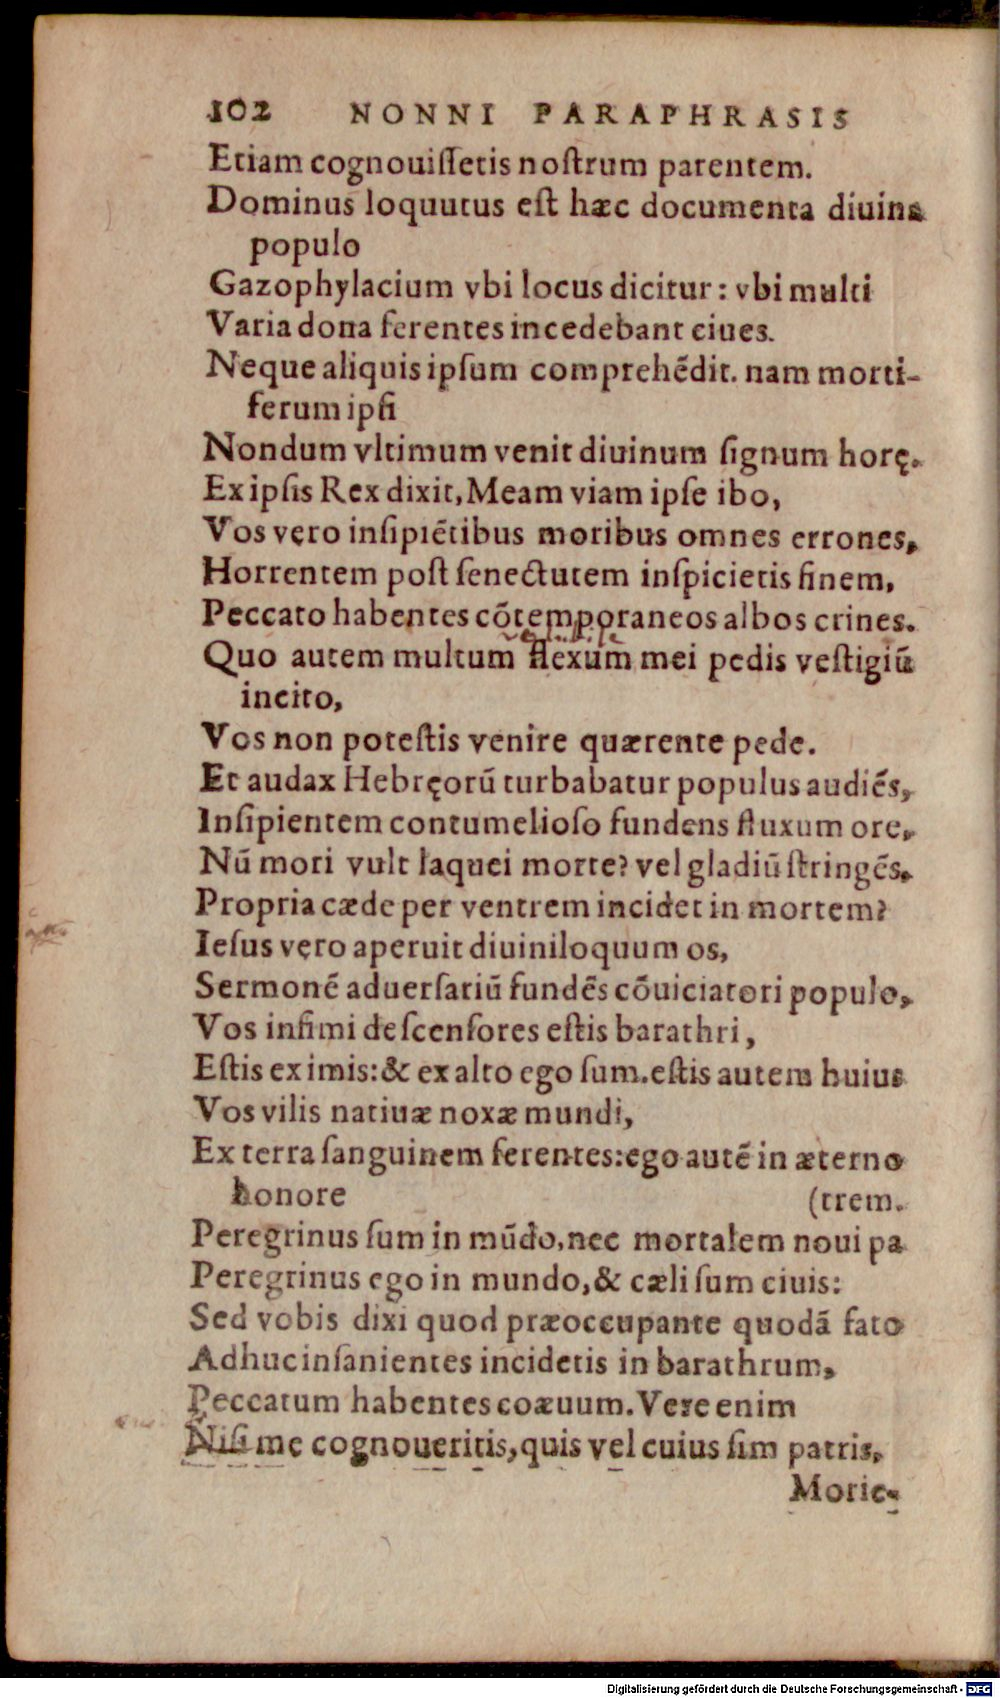 102 NONNI PARAPHRASIS
Etiam cognouiſſetis noſtrum parentem.
Dominus loquutus eſt hæc documenta diuina
populo
Gazophylacium vbi locus dicitur: vbi multi
Varia dona ferentes incedebant ciues.
Neque aliquis ipſum comprehẽdit. nam morti-
ferum ipſi
Nondum vltimum venit diuinum ſignum horę.
Ex ipſis Rex dixit, Meam viam ipſe ibo,
Vos vero inſipiẽtibus moribus omnes errones,
Horrentem poſt ſenectutem inſpicietis finem,
Peccato habentes cõtemporaneos albos crines.
Quo autem multum flexum mei pedis veſtigiũ
incito,
Vos non poteſtis venire quærente pede.
Et audax Hebręorũ turbabatur populus audiẽs,
Inſipientem contumelioſo fundens fluxum ore,
Nũ mori vult laquei morte? vel gladiũ ſtringẽs,
Propria cæde per ventrem incidet in mortem?
Ieſus vero aperuit diuiniloquum os,
Sermonẽ aduerſariũ fundẽs cõuiciatori populo,
Vos infimi deſcenſores eſtis barathri,
Eſtis ex imis: & ex alto ego ſum. eſtis autem huius
Vos vilis natiuæ noxæ mundi,
Ex terra ſanguinem ferentes: ego autẽ in æterno
honore (trem.
Peregrinus ſum in mũdo, nec mortalem noui pa
Peregrinus ego in mundo, & cæli ſum ciuis:
Sed vobis dixi quod præoccupante quodã fato
Adhuc inſanientes incidetis in barathrum,
Peccatum habentes coæuum. Vere enim
Niſi me cognoueritis, quis vel cuius ſim patris,
Morie-
Digitalisierung gefördert durch die Deutsche Forschungsgemeinschaft - DFG